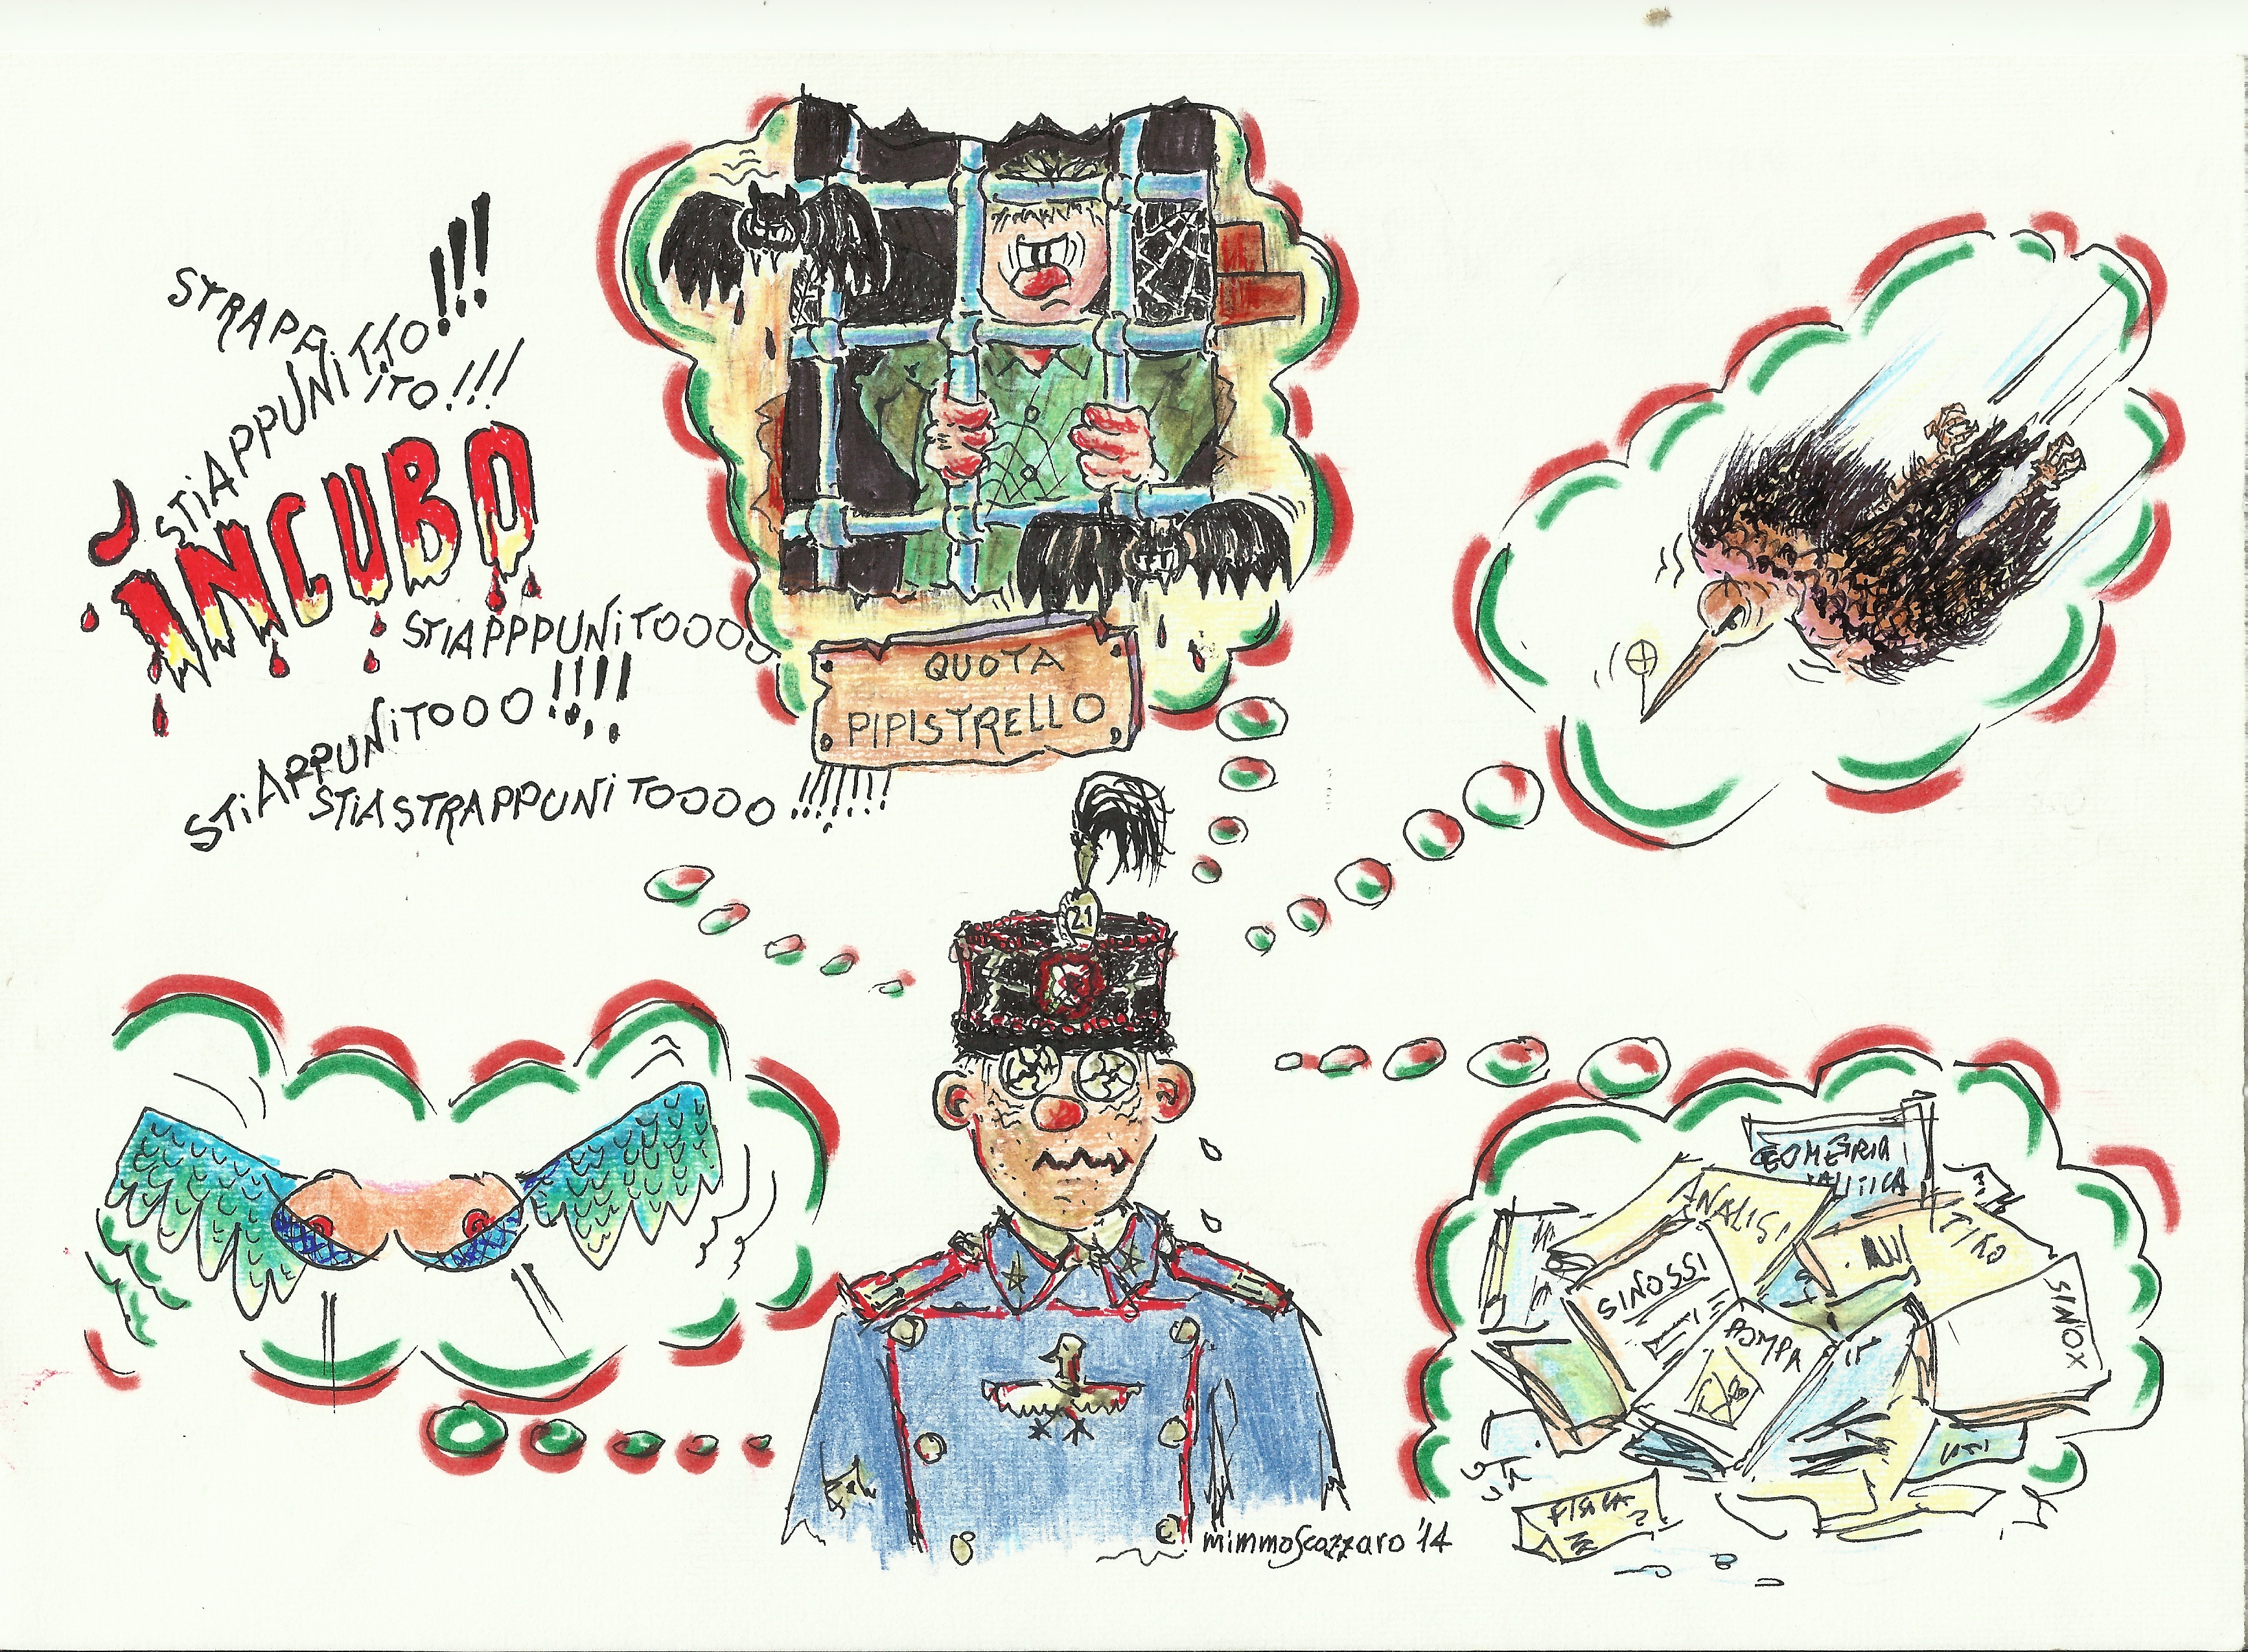 STRAPPUNITTO!!!
STIAPPUNITTO!!!
iNCUBO
STIAPPPUNiTOOOO
STiAPPUNiTOOO!!!!
STiASTRAPPUNiTOOOO!!!!!!!
QUOTA
PIPISTRELLO
21
GEOMETRIA
ANALISI
SINOSSI
POMPA
SINOX
FISICA
mimmoScozzaro '14